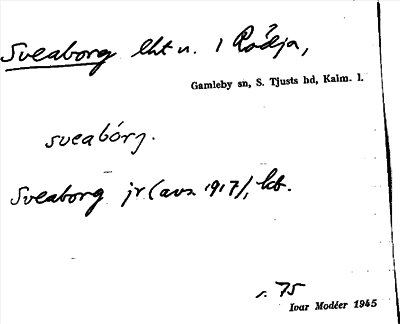 Sveaborg lht n. 1 Rödja,
Gamleby sn, S. Tjusts hd, Kalm. l.
sveabórg.
Sveaborg jr (avs 1917), kb.
s. 75
Ivar Modéer 1945